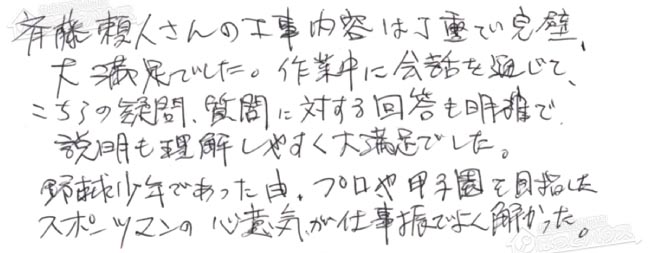 斉藤頼人さんの工事内容は丁重で完璧、
大満足でした。作業中に会話を通じて、
こちらの疑問、質問に対する回答も明確で
説明も理解しやすく大満足でした。
野球少年であった由、プロや甲子園を目指した
スポーツマンの心意気が仕事振でよく解かった。